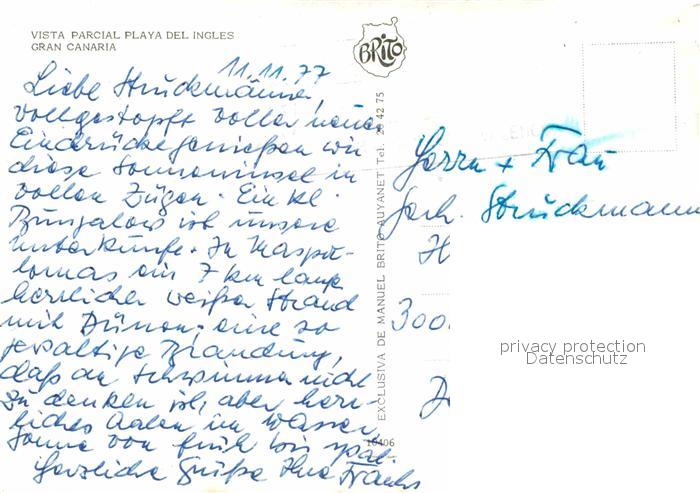 VISTA PARCIAL PLAYA DEL INGLES
GRAN CANARIA
BRITO
11.11.77
Liebe Struckmänner,
vollgestopft voller neuer
Eindrücke genießen wir
diese Sonneninsel in
vollen Zügen. Ein kl.
Bungalow ist unsere
Unterkunft. In Maspa-
lomas ein 7 km lange
herrlicher weißer Strand
mit Dünen, eine so
gewaltige Brandung,
daß an Schwimmen nicht
zu denken ist, aber herr-
liches Aalen im Wasser,
Sonne von früh bis spät.
Herzliche Grüße Ihre
EXCLUSIVA DE MANUEL BRITO AUYANET Tel. 29 42 75
10406
Herrn + Frau
Gerh. Struckmann
H
300
D
privacy protection
Datenschutz